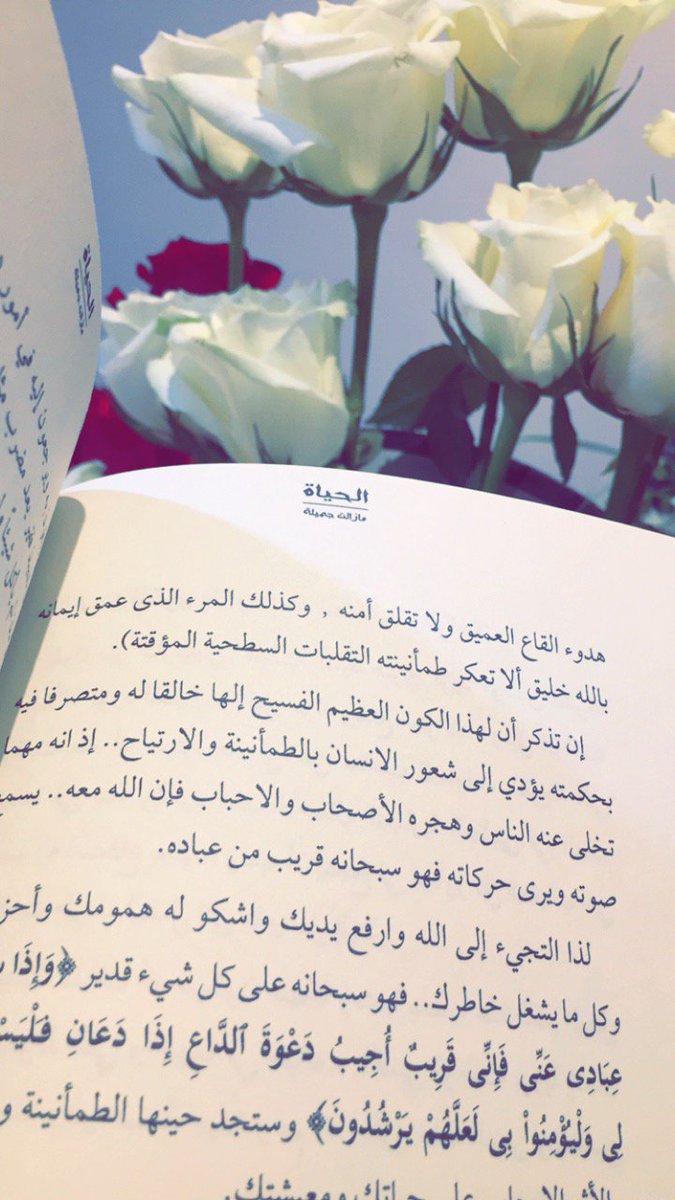 الحياة
مازالت جميلة
هدوء القاع العميق ولا تقلق أمنه , وكذلك المرء الذى عمق إيمانه
بالله خليق ألا تعكر طمأنينته التقلبات السطحية المؤقتة).
إن تذكر أن لهذا الكون العظيم الفسيح إلها خالقا له ومتصرفا فيه
بحكمته يؤدي إلى شعور الانسان بالطمأنينة والارتياح.. إذ انه مهما
تخلى عنه الناس وهجره الأصحاب والاحباب فإن الله معه.. يسمع
صوته ويرى حركاته فهو سبحانه قريب من عباده.
لذا التجيء إلى الله وارفع يديك واشكو له همومك
وكل ما يشغل خاطرك.. فهو سبحانه على كل شيء قدير ﴿وَإِذَا
عِبَادِى عَنِّى فَإِنِّى قَرِيبٌ أُجِيبُ دَعْوَةَ ٱلدَّاعِ إِذَا دَعَانِ
لِى وَلْيُؤْمِنُوا۟ بِى لَعَلَّهُمْ يَرْشُدُونَ﴾ وستجد حينها الطمأنينة
حياتك ومعيشتك.
الحياة